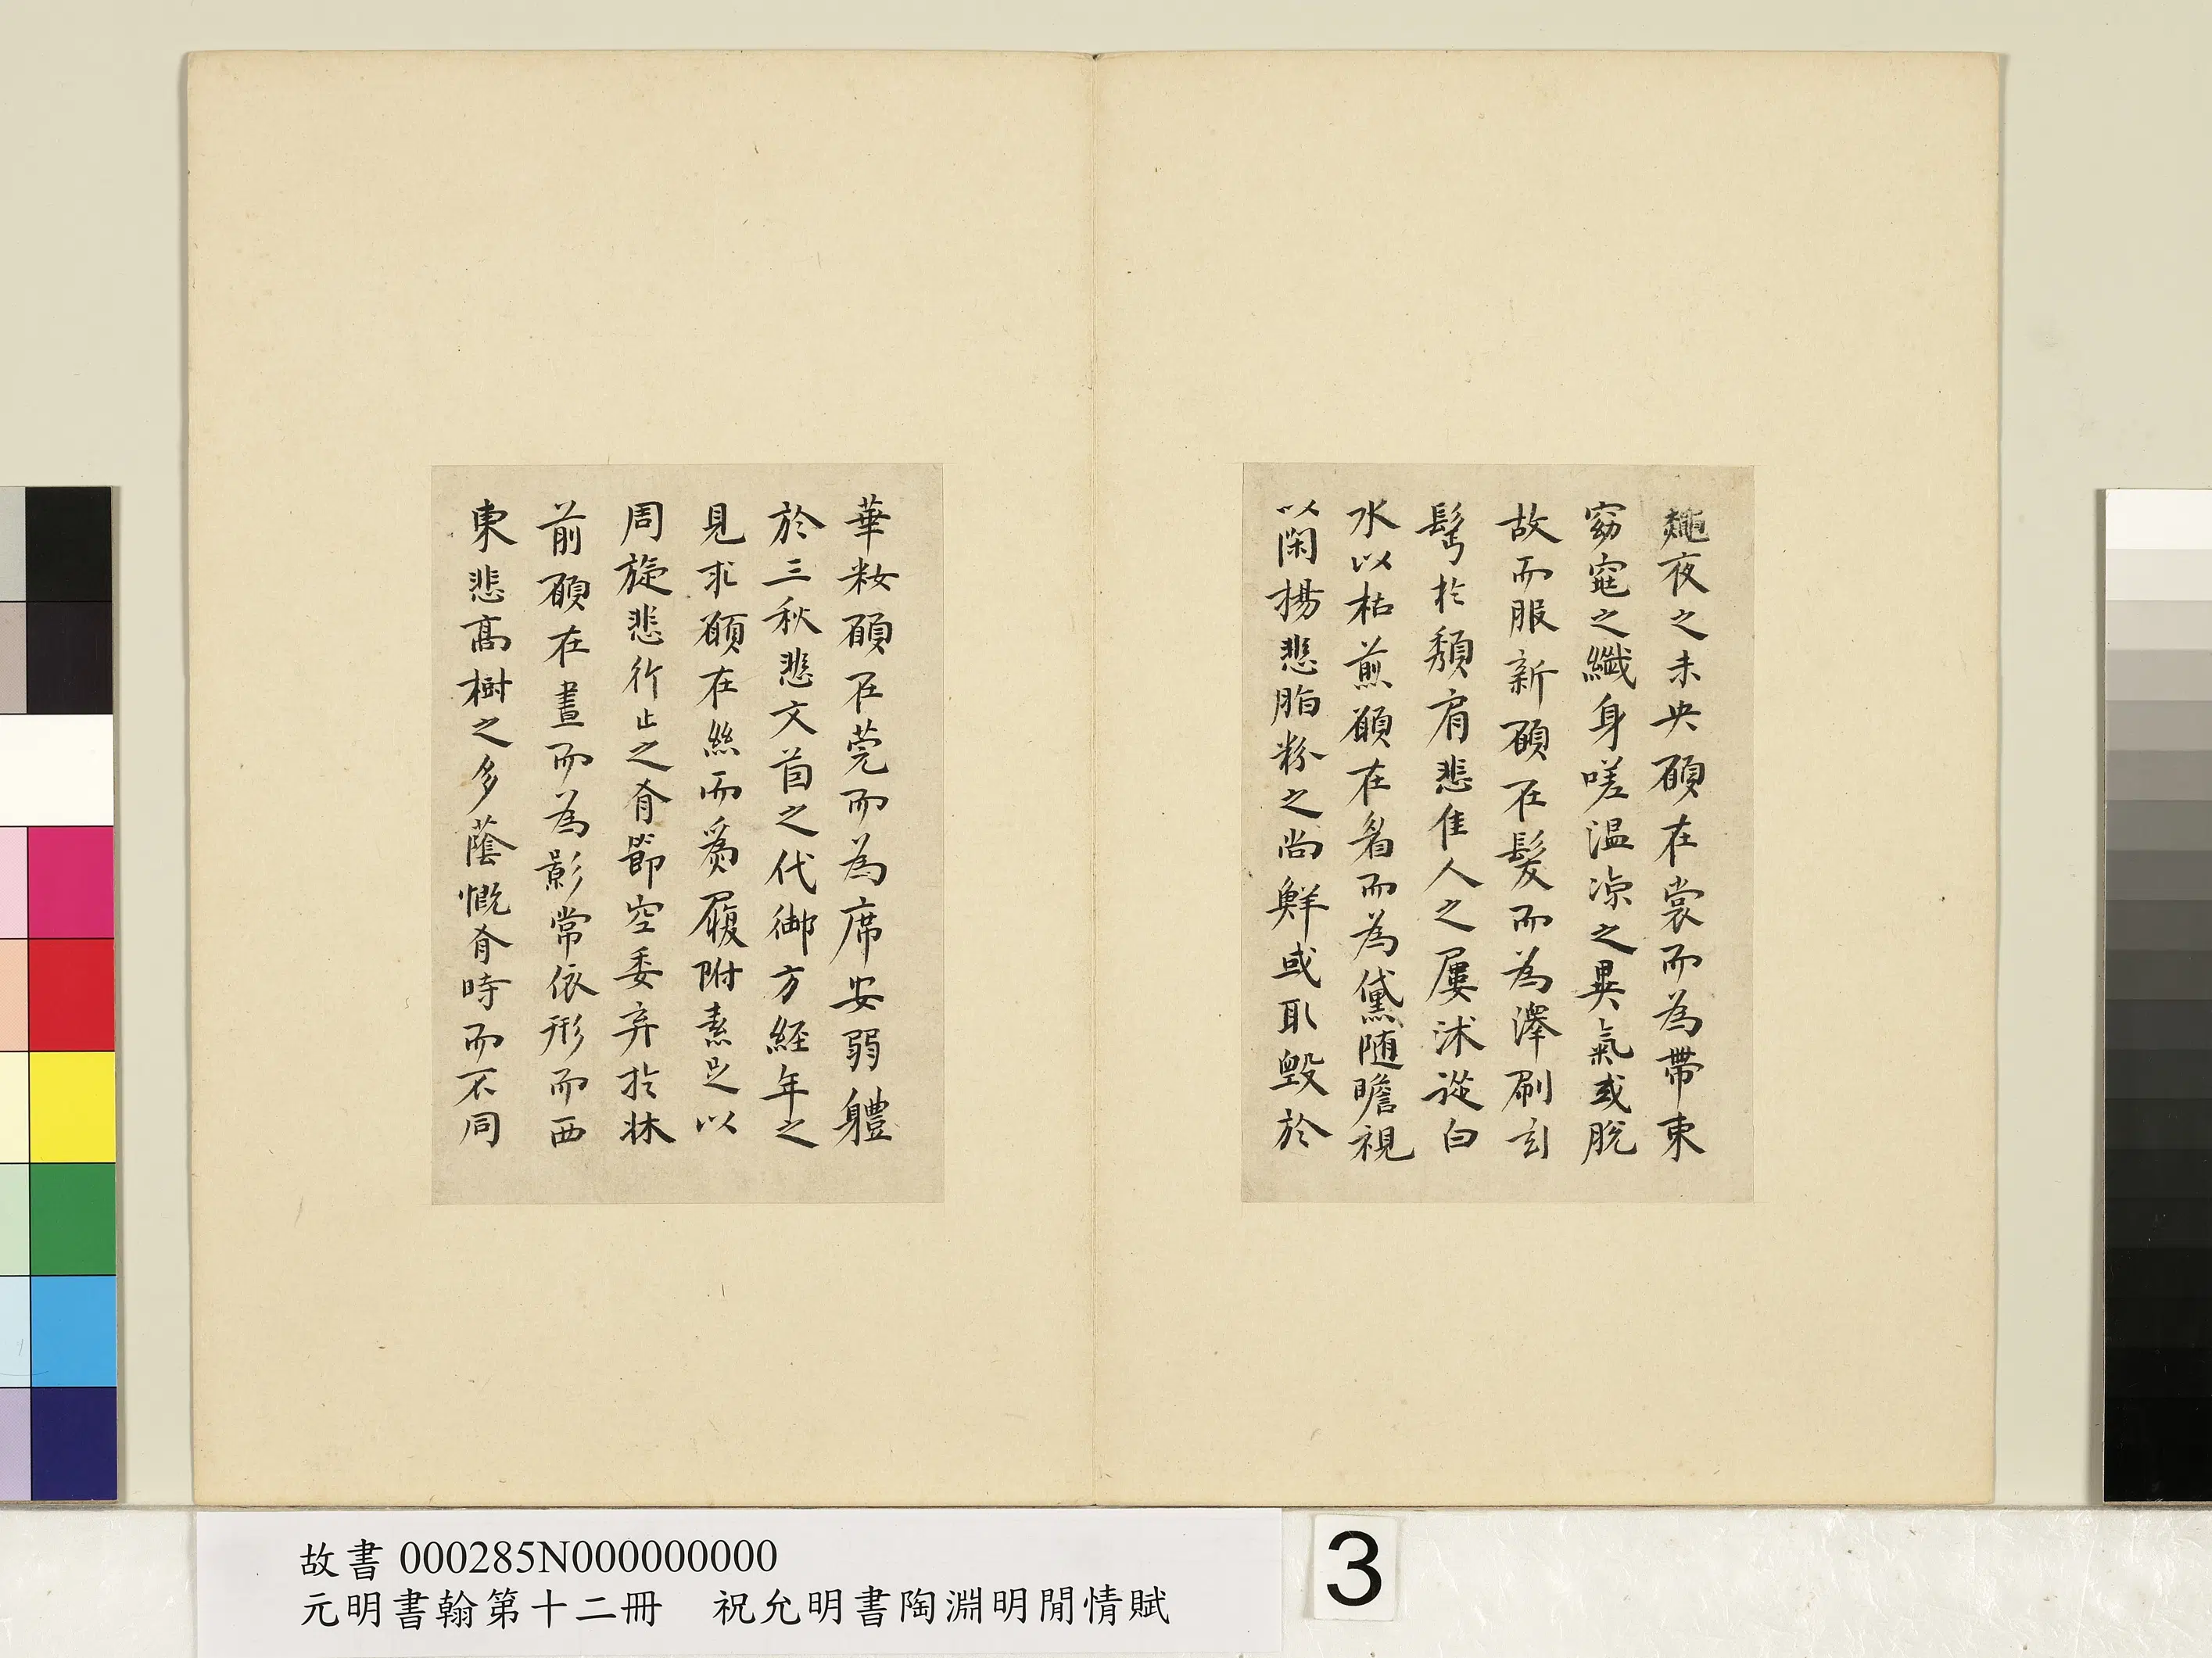 龝夜之未央願在裳而為帶束
窈窕之纖身嗟温凉之異氣或脫
故而服新願在髮而為澤刷玄
鬢於頹肩悲佳人之屢沐從白
水以枯煎願在眉而為黛随瞻視
以閑揚悲脂粉之尚鮮或取毀於
華妝願在莞而為席安弱體
於三秋悲文茵之代御方經年之
見求願在絲而爲履附素足以
周旋悲行止之有節空委弃於牀
前願在晝而為影常依形而西
東悲高樹之多蔭慨有時而不同
故書 000285N000000000
元明書翰第十二冊　祝允明書陶淵明閒情賦
3